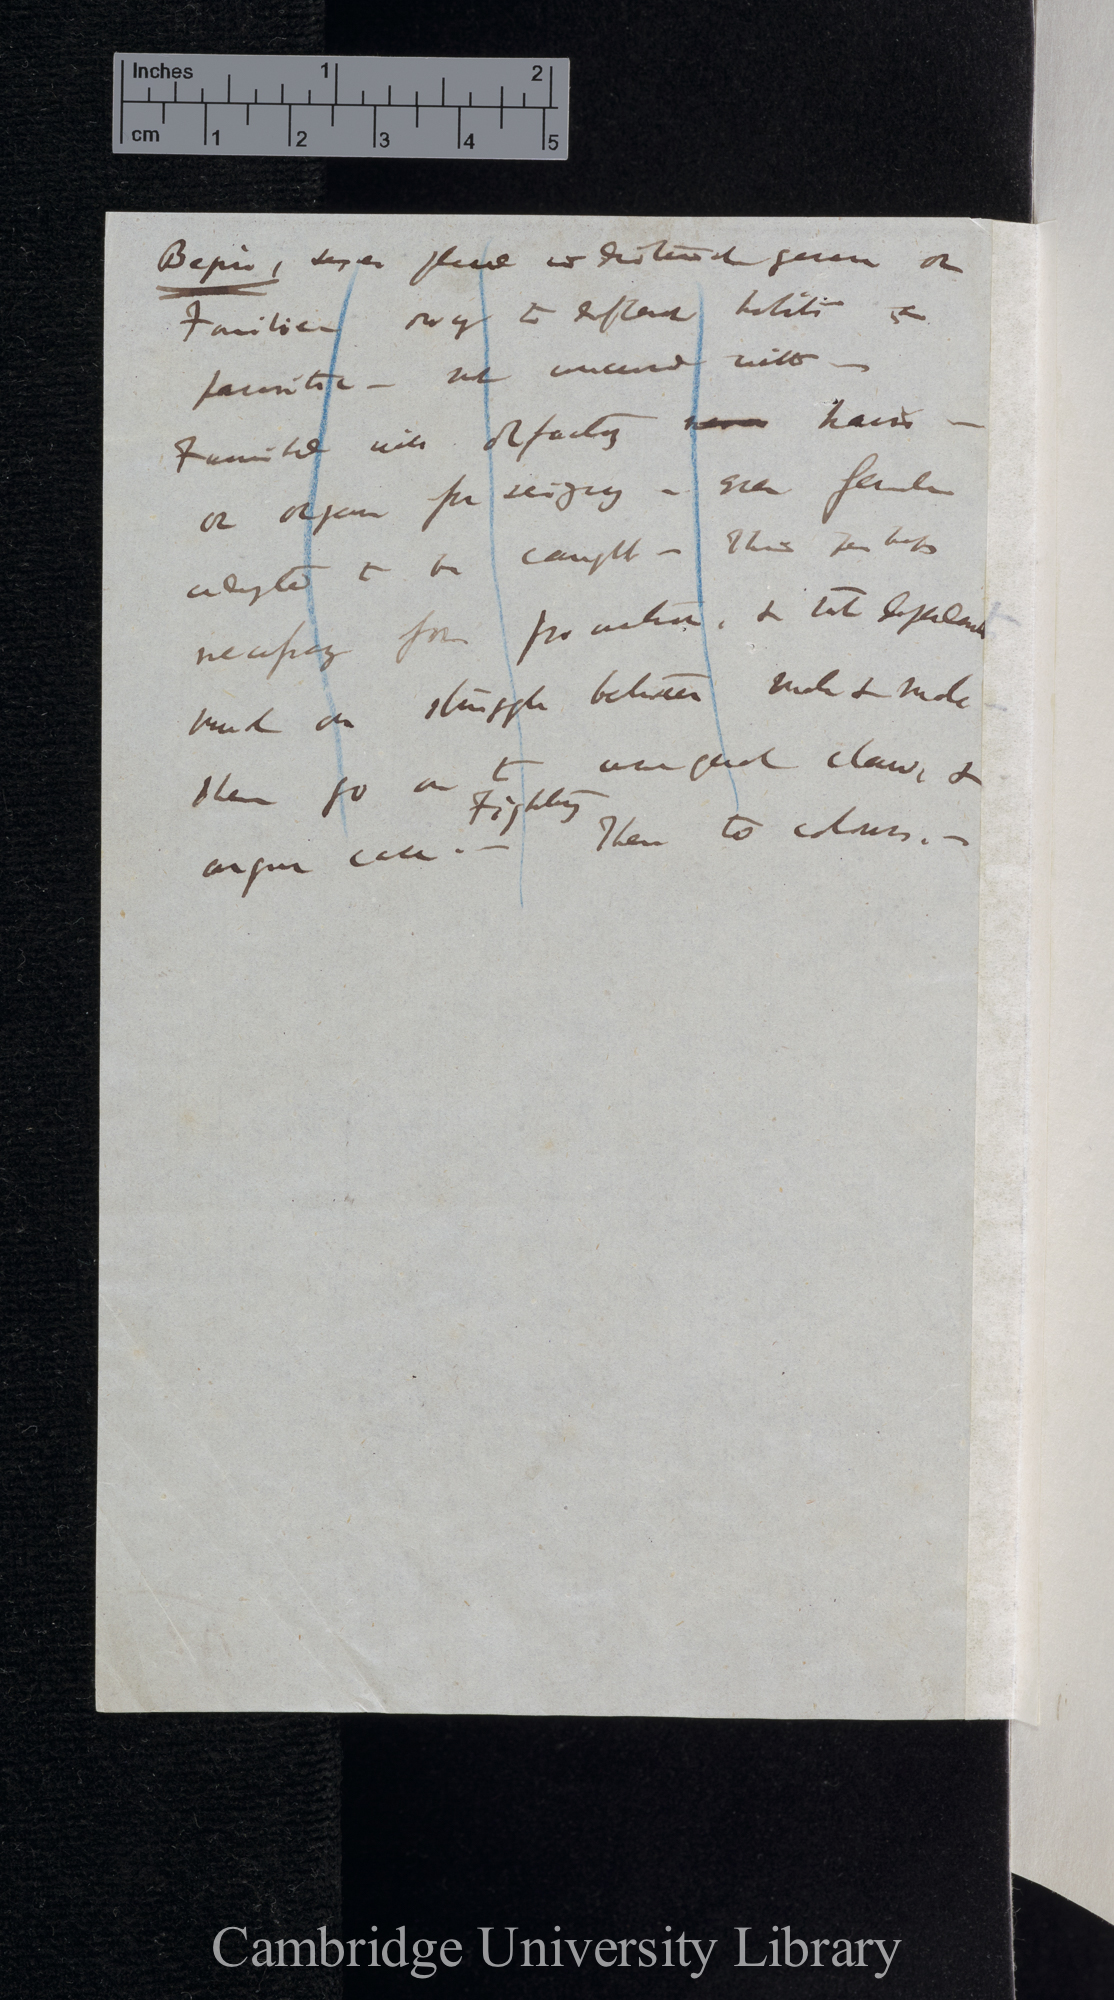 Inches 1 2
cm 1 2 3 4 5
Begin, sexes placed in distinct genera or
Families owing to different habits &
parasitic — not concerned with —
Furnished with olfactory hairs —
or organ for seizing — even females
adapted to be caught — This perhaps
necessary for , & not dependent
much on struggle between male & male
then go on to unequal claws, &
argue case. — Fighting Then to colours. —
Cambridge University Library